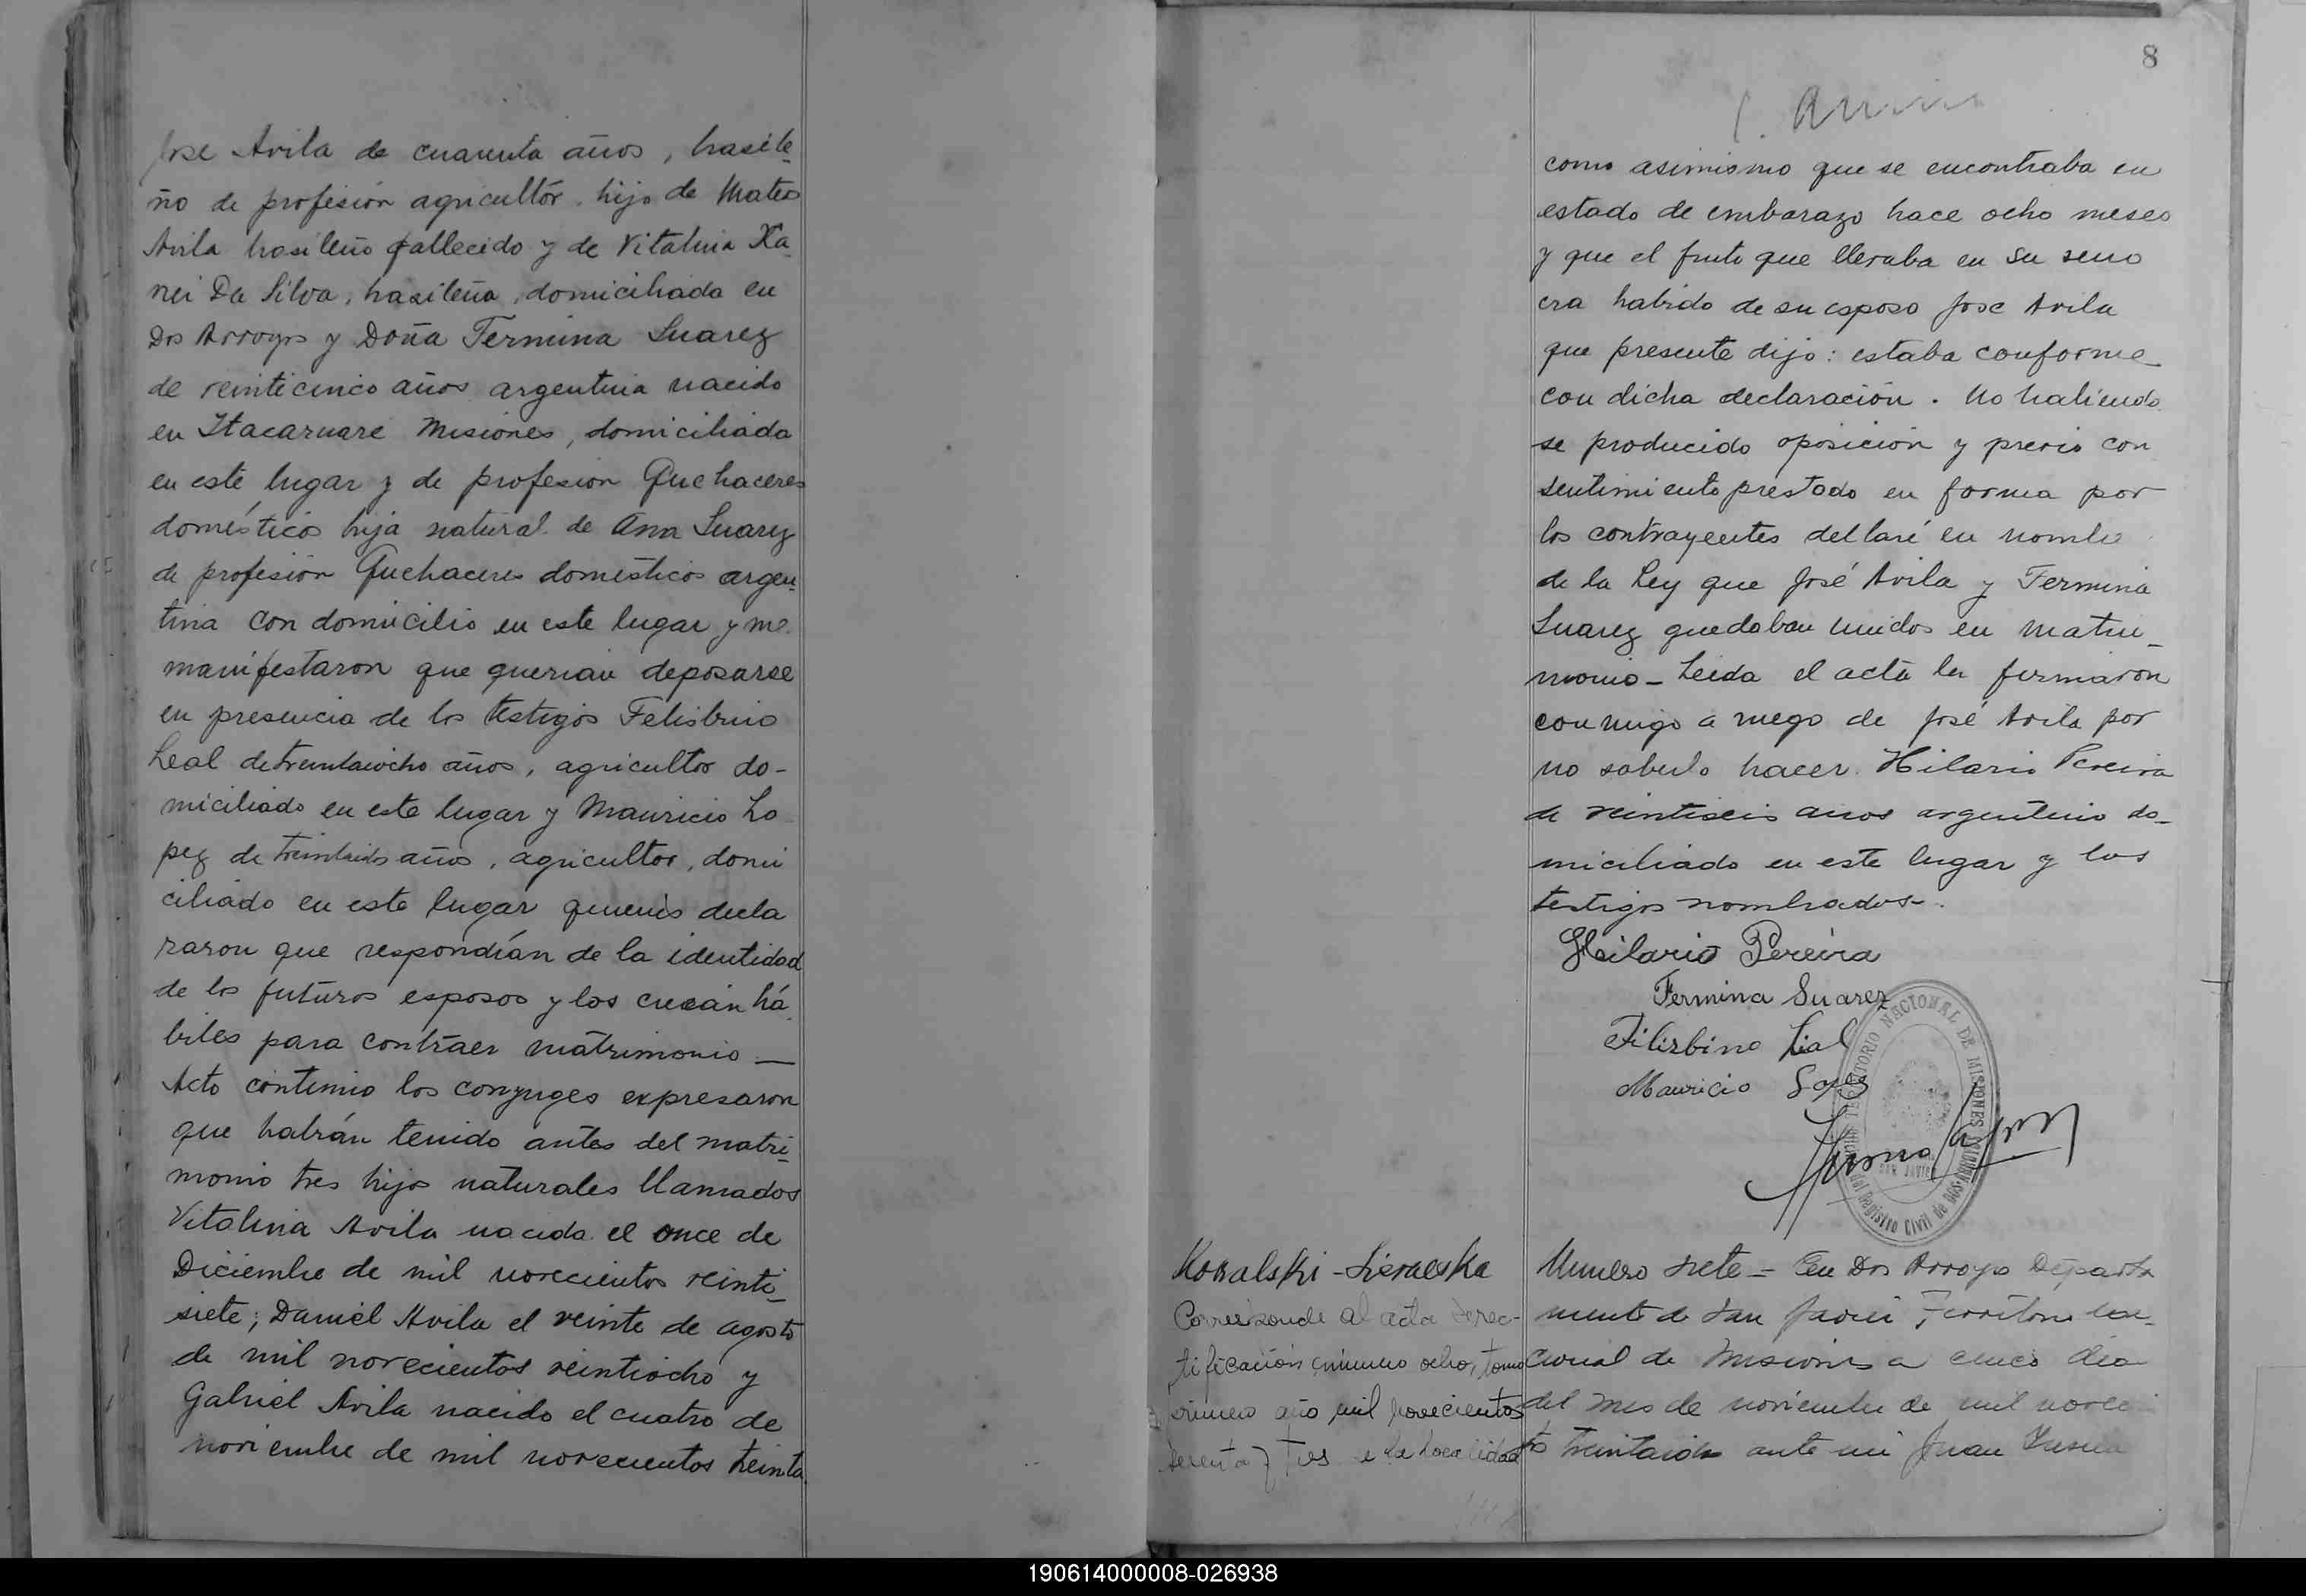 Jose Avila de cuarenta años, brasile-
ño de profesión agricultor, hijo de Mateo
Avila brasileño fallecido y de Vitalina Xa-
nei Da Silva, brasileña, domiciliada en
Dos Arroyos y Doña Fermina Suarez
de veinticinco años argentina nacido
en Itacaruaré Misiones, domiciliada
en este lugar y de profesion Quehaceres
domésticos hija natural de Ana Suarez
de profesión Quehaceres domésticos argen-
tina con domicilio en este lugar y me
manifestaron que querian deposarse
en presencia de los testigos Felisbino
Leal de treintaiocho años, agricultor do-
miciliado en este lugar y Mauricio Lo
pez de treintaidos años, agricultor, domi
ciliado en este lugar quienes decla
raron que respondían de la identidad
de los futuros esposos y los creían há
biles para contraer matrimonio —
Acto continuo los conyuges expresaron
que habrán tenido antes del matri-
monio tres hijos naturales llamados
Vitalina Avila nacida el once de
Diciembre de mil novecientos veinti-
siete; Daniel Avila el veinte de agosto
de mil novecientos veintiocho y
Gabriel Avila nacido el cuatro de
noviembre de mil novecientos treinta
8
como asimismo que se encontraba en
estado de embarazo hace ocho meses
y que el fruto que llevaba en su seno
era habido de su esposo Jose Avila
que presente dijo: estaba conforme
con dicha declaración. No habiendo
se producido oposición y previo con
sentimiento prestado en forma por
los contrayentes declaré en nombre
de la Ley que José Avila y Fermina
Suarez quedaban unidos en matri-
monio - Leida el acta la firmaron
conmigo a ruego de José Avila por
no saberlo hacer Hilario Pereira
de veintiseis años argentino do-
miciliado en este lugar y los
testigos nombrados.
Hilario Pereira
Fermina Suarez
Filisbino Lial
Mauricio Lopez
TERRITORIO NACIONAL DE MISIONES
del Registro Civil de DOS ARROYOS
SAN JAVIER
Kowalski - Sieraeska
Corresponde al acta de rec-
tificación número ocho, tomo
primero año mil novecientos
setenta y tres de la localidad
Numero siete - En Dos Arroyos Departa
mento de San Javier, Territorio Na-
cional de Misiones a cinco dias
del mes de noviembre de mil novecien
tos treintaidos ante mi Juan
190614000008-026938